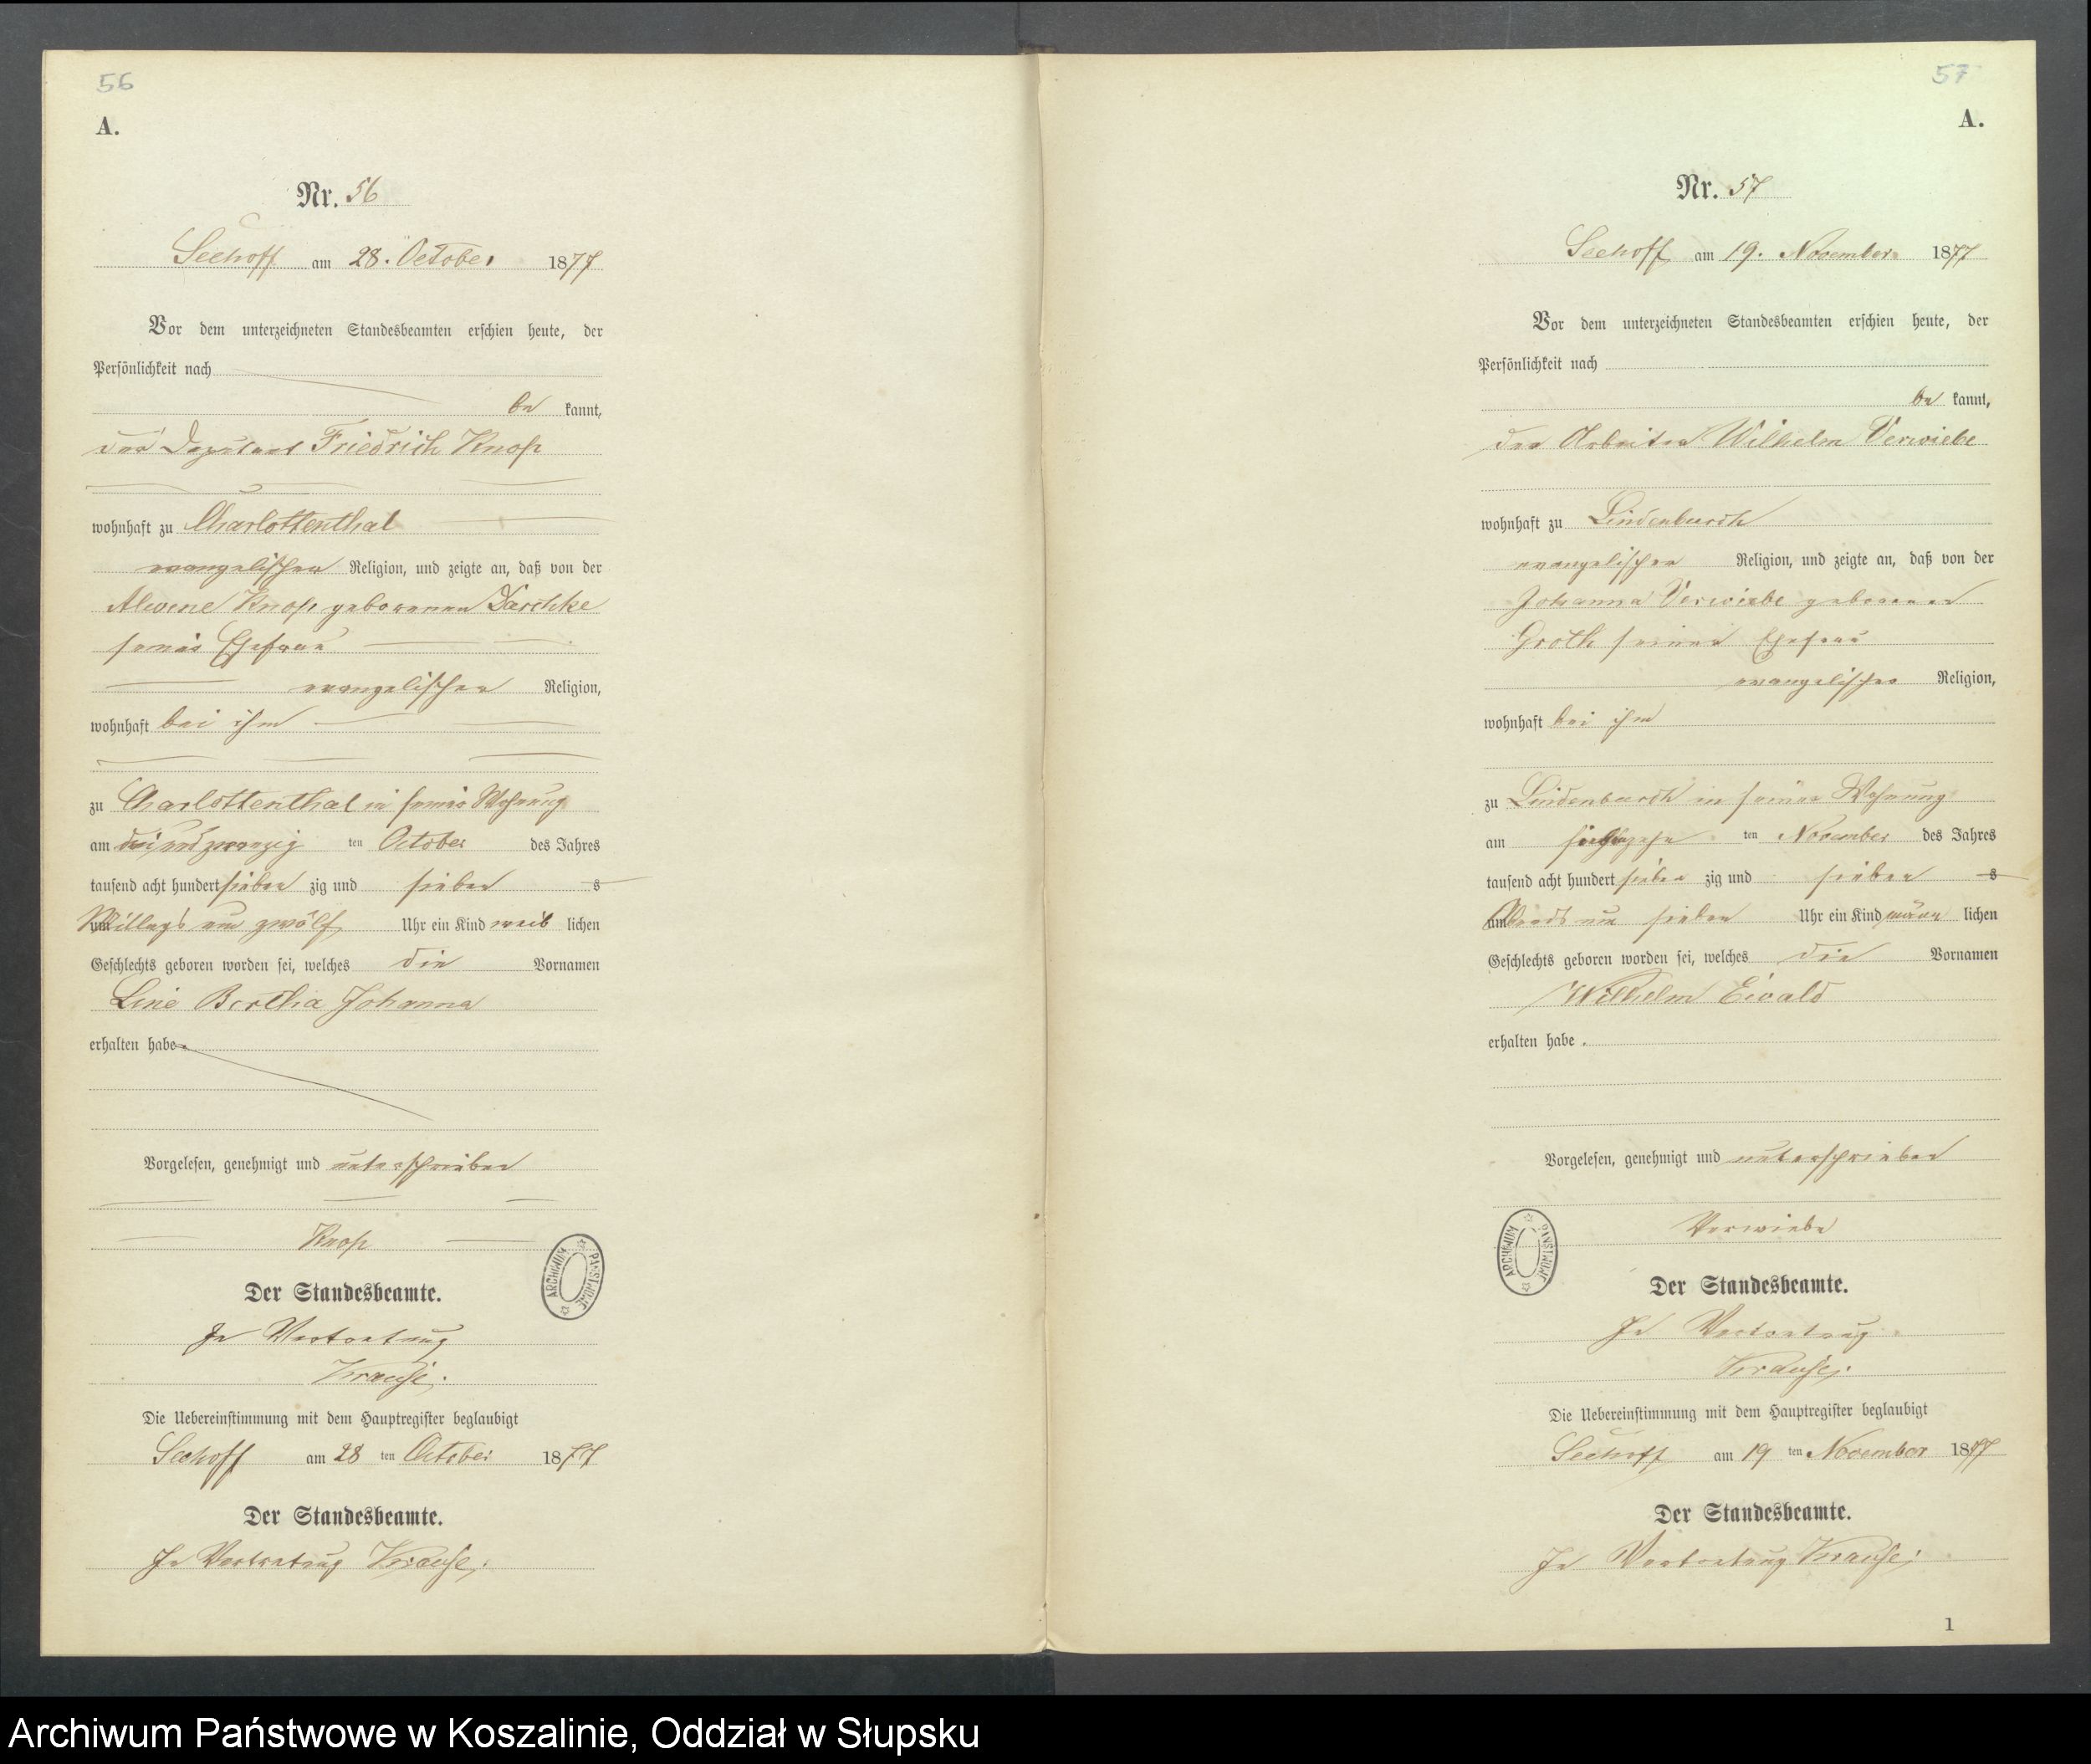 56
A.
Nr. 56
Seehoff am 28. October 1877
Vor dem unterzeichneten Standesbeamten erschien heute, der
Persönlichkeit nach
be kannt,
der Deputant Friedrich Knop
wohnhaft zu Charlottenthal
evangelischer Religion, und zeigte an, daß von der
Alwine Knop geborenen Darschke
seiner Ehefrau
evangelischer Religion,
wohnhaft bei ihm
zu Charlottenthal in seiner Wohnung
am drei und zwanzig ten October des Jahres
tausend acht hundert sieben zig und sieben s
um Mittags um zwölf Uhr ein Kind weib lichen
Geschlechts geboren worden sei, welches die Vornamen
Bertha Johanna
erhalten habe.
Vorgelesen, genehmigt und unterschrieben
Knop
ARCHIWUM PAŃSTWOWE
Der Standesbeamte.
In Vertretung
Krause.
Die Uebereinstimmung mit dem Hauptregister beglaubigt
Seehoff am 28 ten October 1877
Der Standesbeamte.
In Vertretung Krause.
57
A.
Nr. 57
Seehoff am 19. November 1877
Vor dem unterzeichneten Standesbeamten erschien heute, der
Persönlichkeit nach
be kannt,
der Arbeiter Wilhelm Verwiebe
wohnhaft zu Lindenbusch
evangelischer Religion, und zeigte an, daß von der
Johanna Verwiebe geborenen
Groth seiner Ehefrau
evangelischer Religion,
wohnhaft bei ihm
zu Lindenbusch in seiner Wohnung
am ten November des Jahres
tausend acht hundert sieben zig und sieben s
um Abends um sieben Uhr ein Kind männ lichen
Geschlechts geboren worden sei, welches die Vornamen
Wilhelm Ewald
erhalten habe.
Vorgelesen, genehmigt und unterschrieben
Verwiebe
ARCHIWUM PAŃSTWOWE
Der Standesbeamte.
In Vertretung
Krause.
Die Uebereinstimmung mit dem Hauptregister beglaubigt
Seehoff am 19 ten November 1877
Der Standesbeamte.
In Vertretung Krause.
1
Archiwum Państwowe w Koszalinie, Oddział w Słupsku